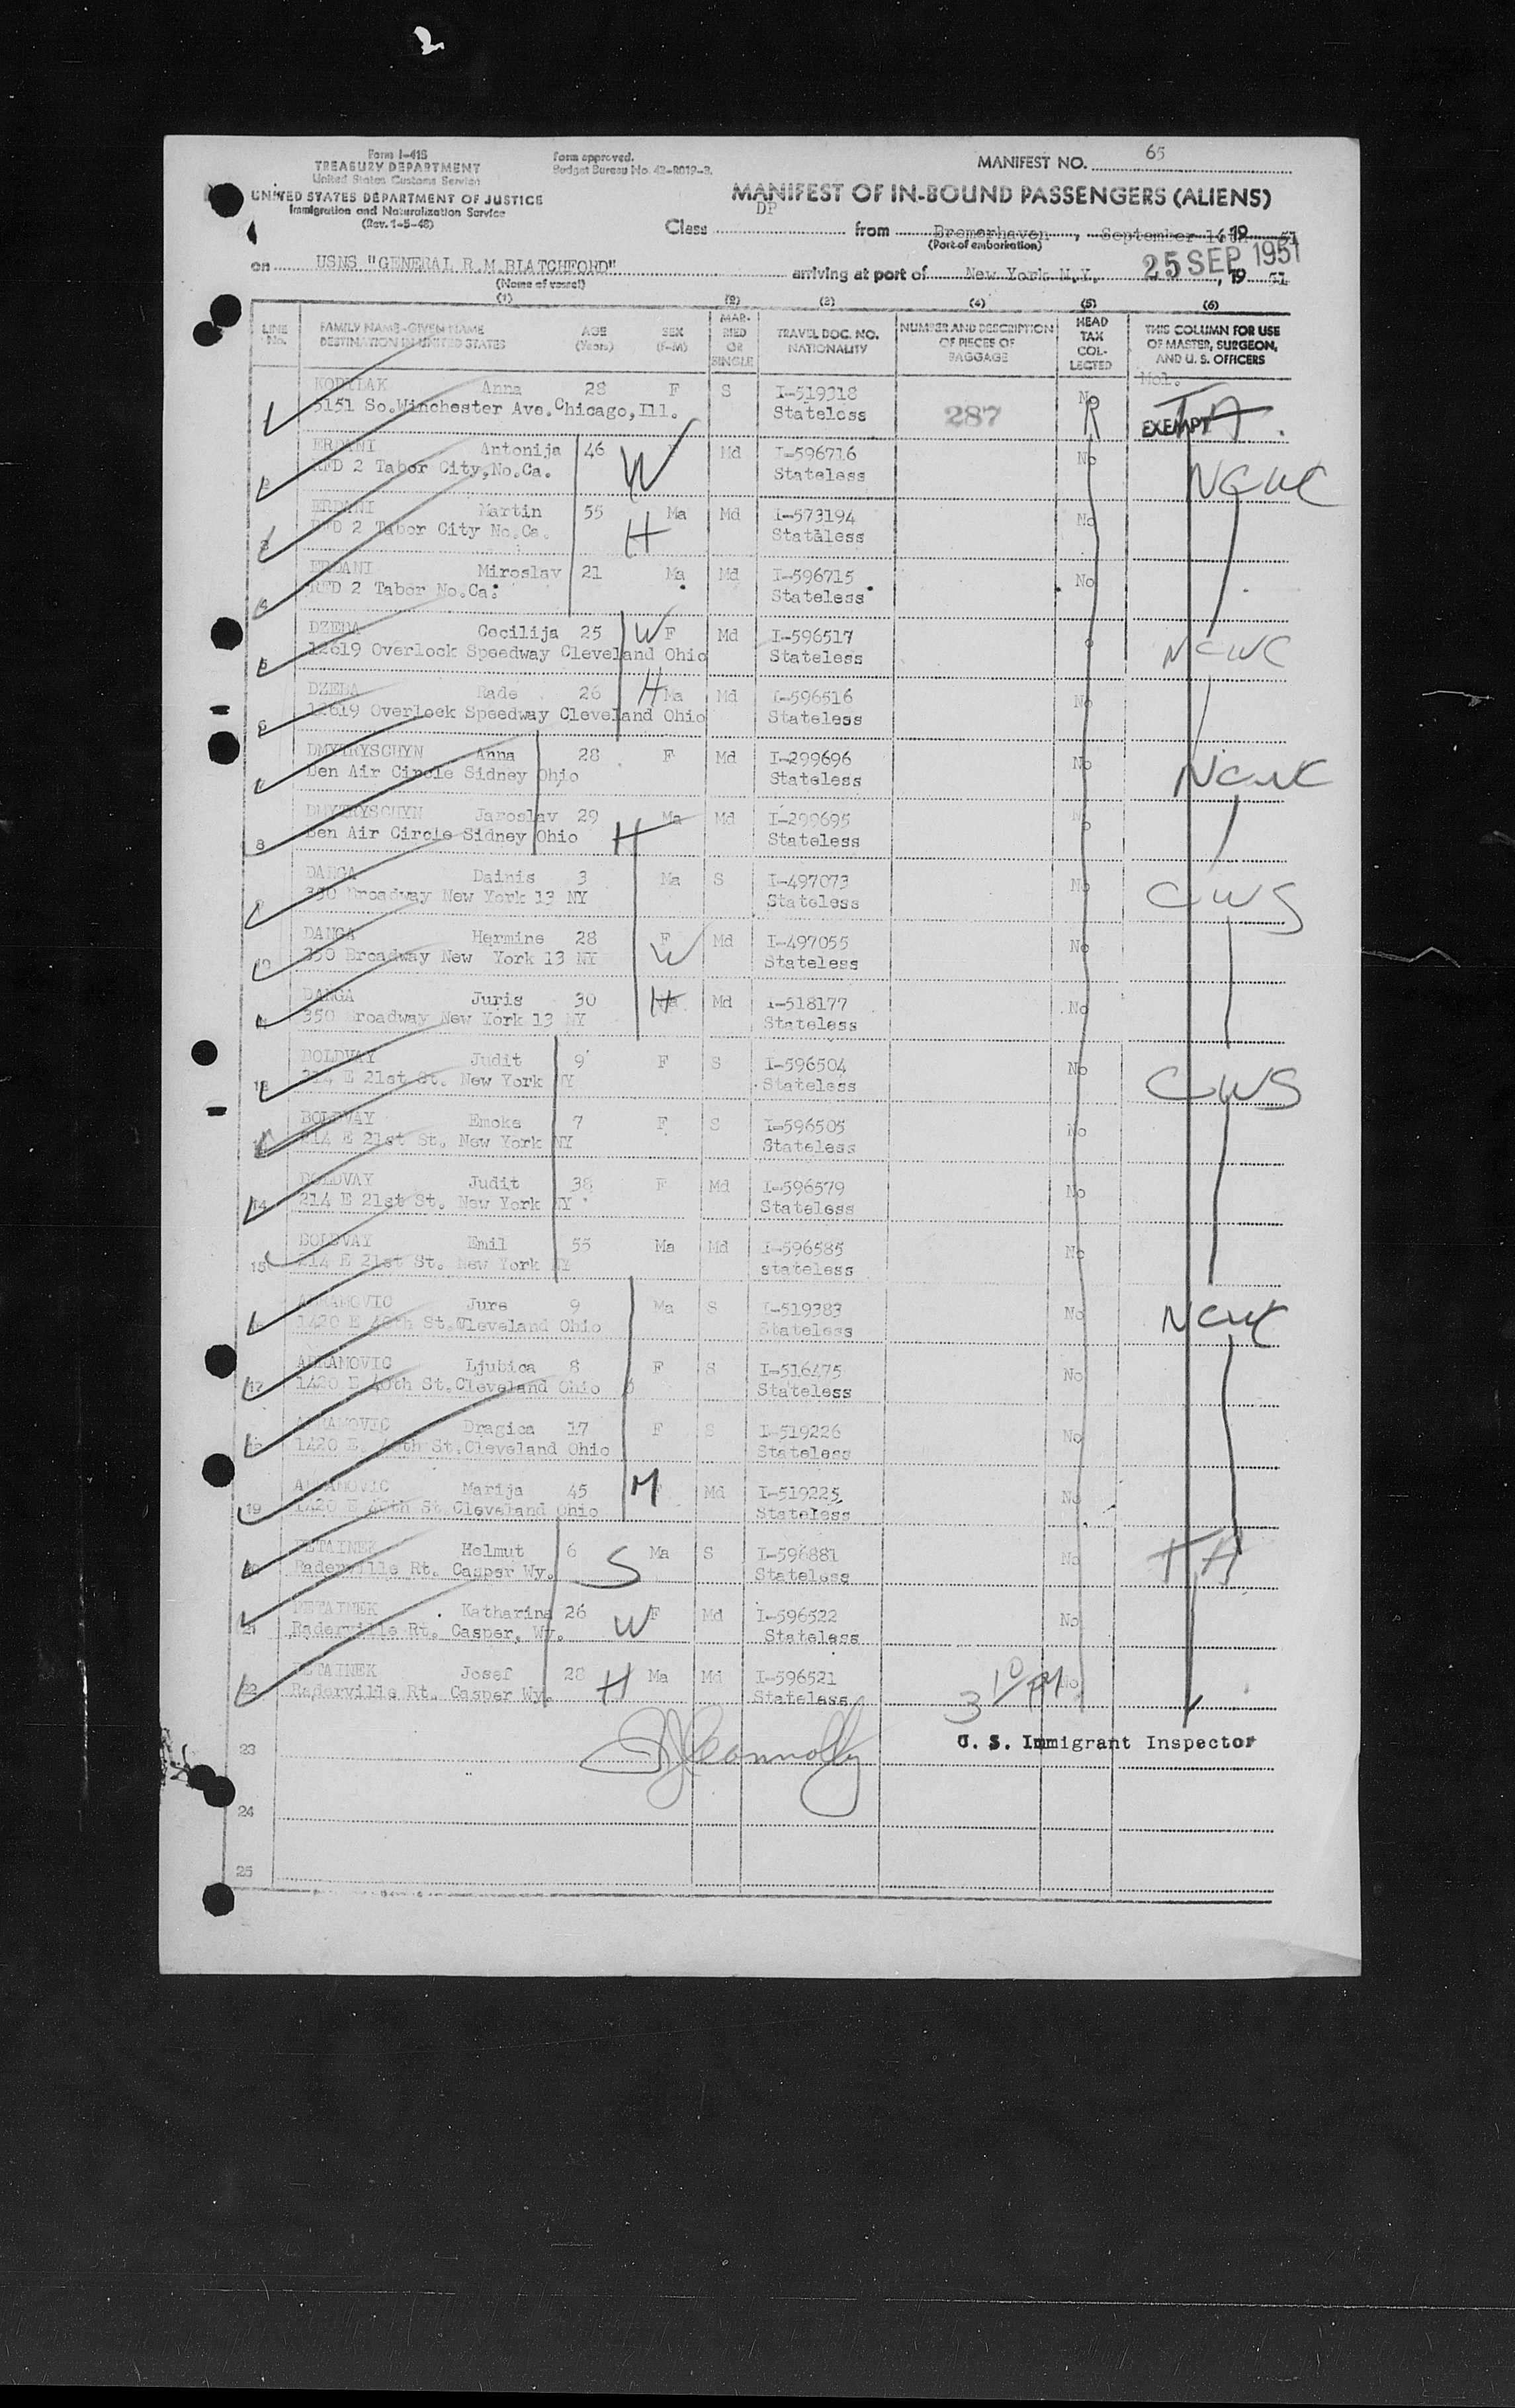 Form I-415
TREASURY DEPARTMENT
United States Customs Service
UNITED STATES DEPARTMENT OF JUSTICE
Immigration and Naturalization Service
(Rev. 1-5-48)
Form approved.
Budget Bureau No. 43-R019-2.
MANIFEST NO. 65
MANIFEST OF IN-BOUND PASSENGERS (ALIENS)
Class DP from Bremerhaven, September 16th, 19 51
(Port of embarkation)
on USNS "GENERAL R.M.BLATCHFORD" arriving at port of New York N.Y. 25 SEP 1951, 19 51
(Name of vessel)
(1) (2) (3) (4) (5) (6)
LINE NO. FAMILY NAME-GIVEN NAME DESTINATION IN UNITED STATES AGE (Years) SEX (F-M) MARRIED OR SINGLE TRAVEL DOC. NO. NATIONALITY NUMBER AND DESCRIPTION OF PIECES OF BAGGAGE HEAD TAX COLLECTED THIS COLUMN FOR USE OF MASTER, SURGEON, AND U. S. OFFICERS
Anna 28 F S I-519318 No
5151 So.Winchester Ave.Chicago,Ill. Stateless 287 EXEMPT
2 ERDANI Antonija 46 W Md I-596716 No
RFD 2 Tabor City,No.Ca. Stateless NCWC
3 ERDANI Martin 55 Ma Md I-573194 No
RFD 2 Tabor City No.Ca. H Stateless
4 ERDANI Miroslav 21 Ma Md I-596715 No
RFD 2 Tabor No.Ca. Stateless
5 DZEBA Cecilija 25 W F Md I-596517
12619 Overlook Speedway Cleveland Ohio Stateless NCWC
6 DZEBA Rade 26 H Ma Md I-596516 No
12619 Overlook Speedway Cleveland Ohio Stateless
7 DMYTRYSCHYN Anna 28 F Md I-299696 No
Ben Air Circle Sidney Ohio Stateless NCWC
8 DMYTRYSCHYN Jaroslav 29 Ma Md I-299695 No
Ben Air Circle Sidney Ohio H Stateless
9 DANGA Dainis 3 Ma S I-497073 No
350 Broadway New York 13 NY Stateless CWS
10 DANGA Hermine 28 F Md I-497055 No
350 Broadway New York 13 NY W Stateless
11 DANGA Juris 30 H Md I-518177 No
350 Broadway New York 13 NY Stateless
12 BOLDVAY Judit 9 F S I-596504 No
214 E 21st St. New York NY Stateless CWS
BOLDVAY Emoke 7 F S I-596505 No
214 E 21st St. New York NY Stateless
14 BOLDVAY Judit 38 F Md I-596579 No
214 E 21st St. New York NY Stateless
15 BOLDVAY Emil 55 Ma Md I-596585 No
214 E 21st St. New York NY stateless
ABRAMOVIC Jure 9 Ma S I-519383 No
1420 E 40th St.Cleveland Ohio Stateless NCWC
17 ABRAMOVIC Ljubica 8 F S I-516475 No
1420 E 40th St.Cleveland Ohio Stateless
ABRAMOVIC Dragica 17 F S I-519226 No
1420 E. 40th St.Cleveland Ohio Stateless
19 ABRAMOVIC Marija 45 M Md I-519225 No
1420 E 40th St Cleveland Ohio Stateless
20 Helmut 6 Ma S I-596881 No
Raderville Rt. Casper Wy. S Stateless
21 Katharina 26 F Md I-596522 No
Raderville Rt. Casper, Wy. W Stateless
22 Josef 28 Ma Md I-596521 No
Raderville Rt. Casper Wy. H Stateless
3 10 PM
Connolly
U. S. Immigrant Inspector
23
24
25